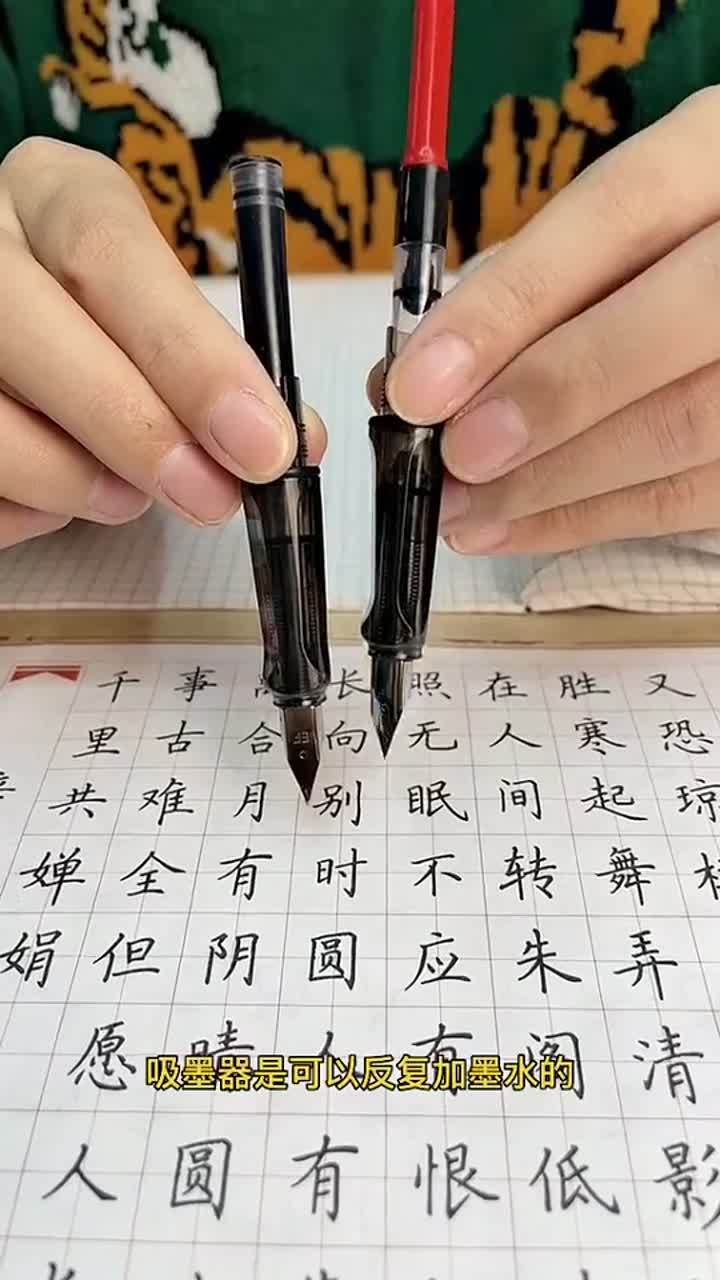 又恐琼
胜寒起舞弄清影
在人间转朱阁低
照无眠不应有恨
长向别时圆人有
合月有阴晴圆
事古难全但愿人
千里共婵娟
吸墨器是可以反复加墨水的